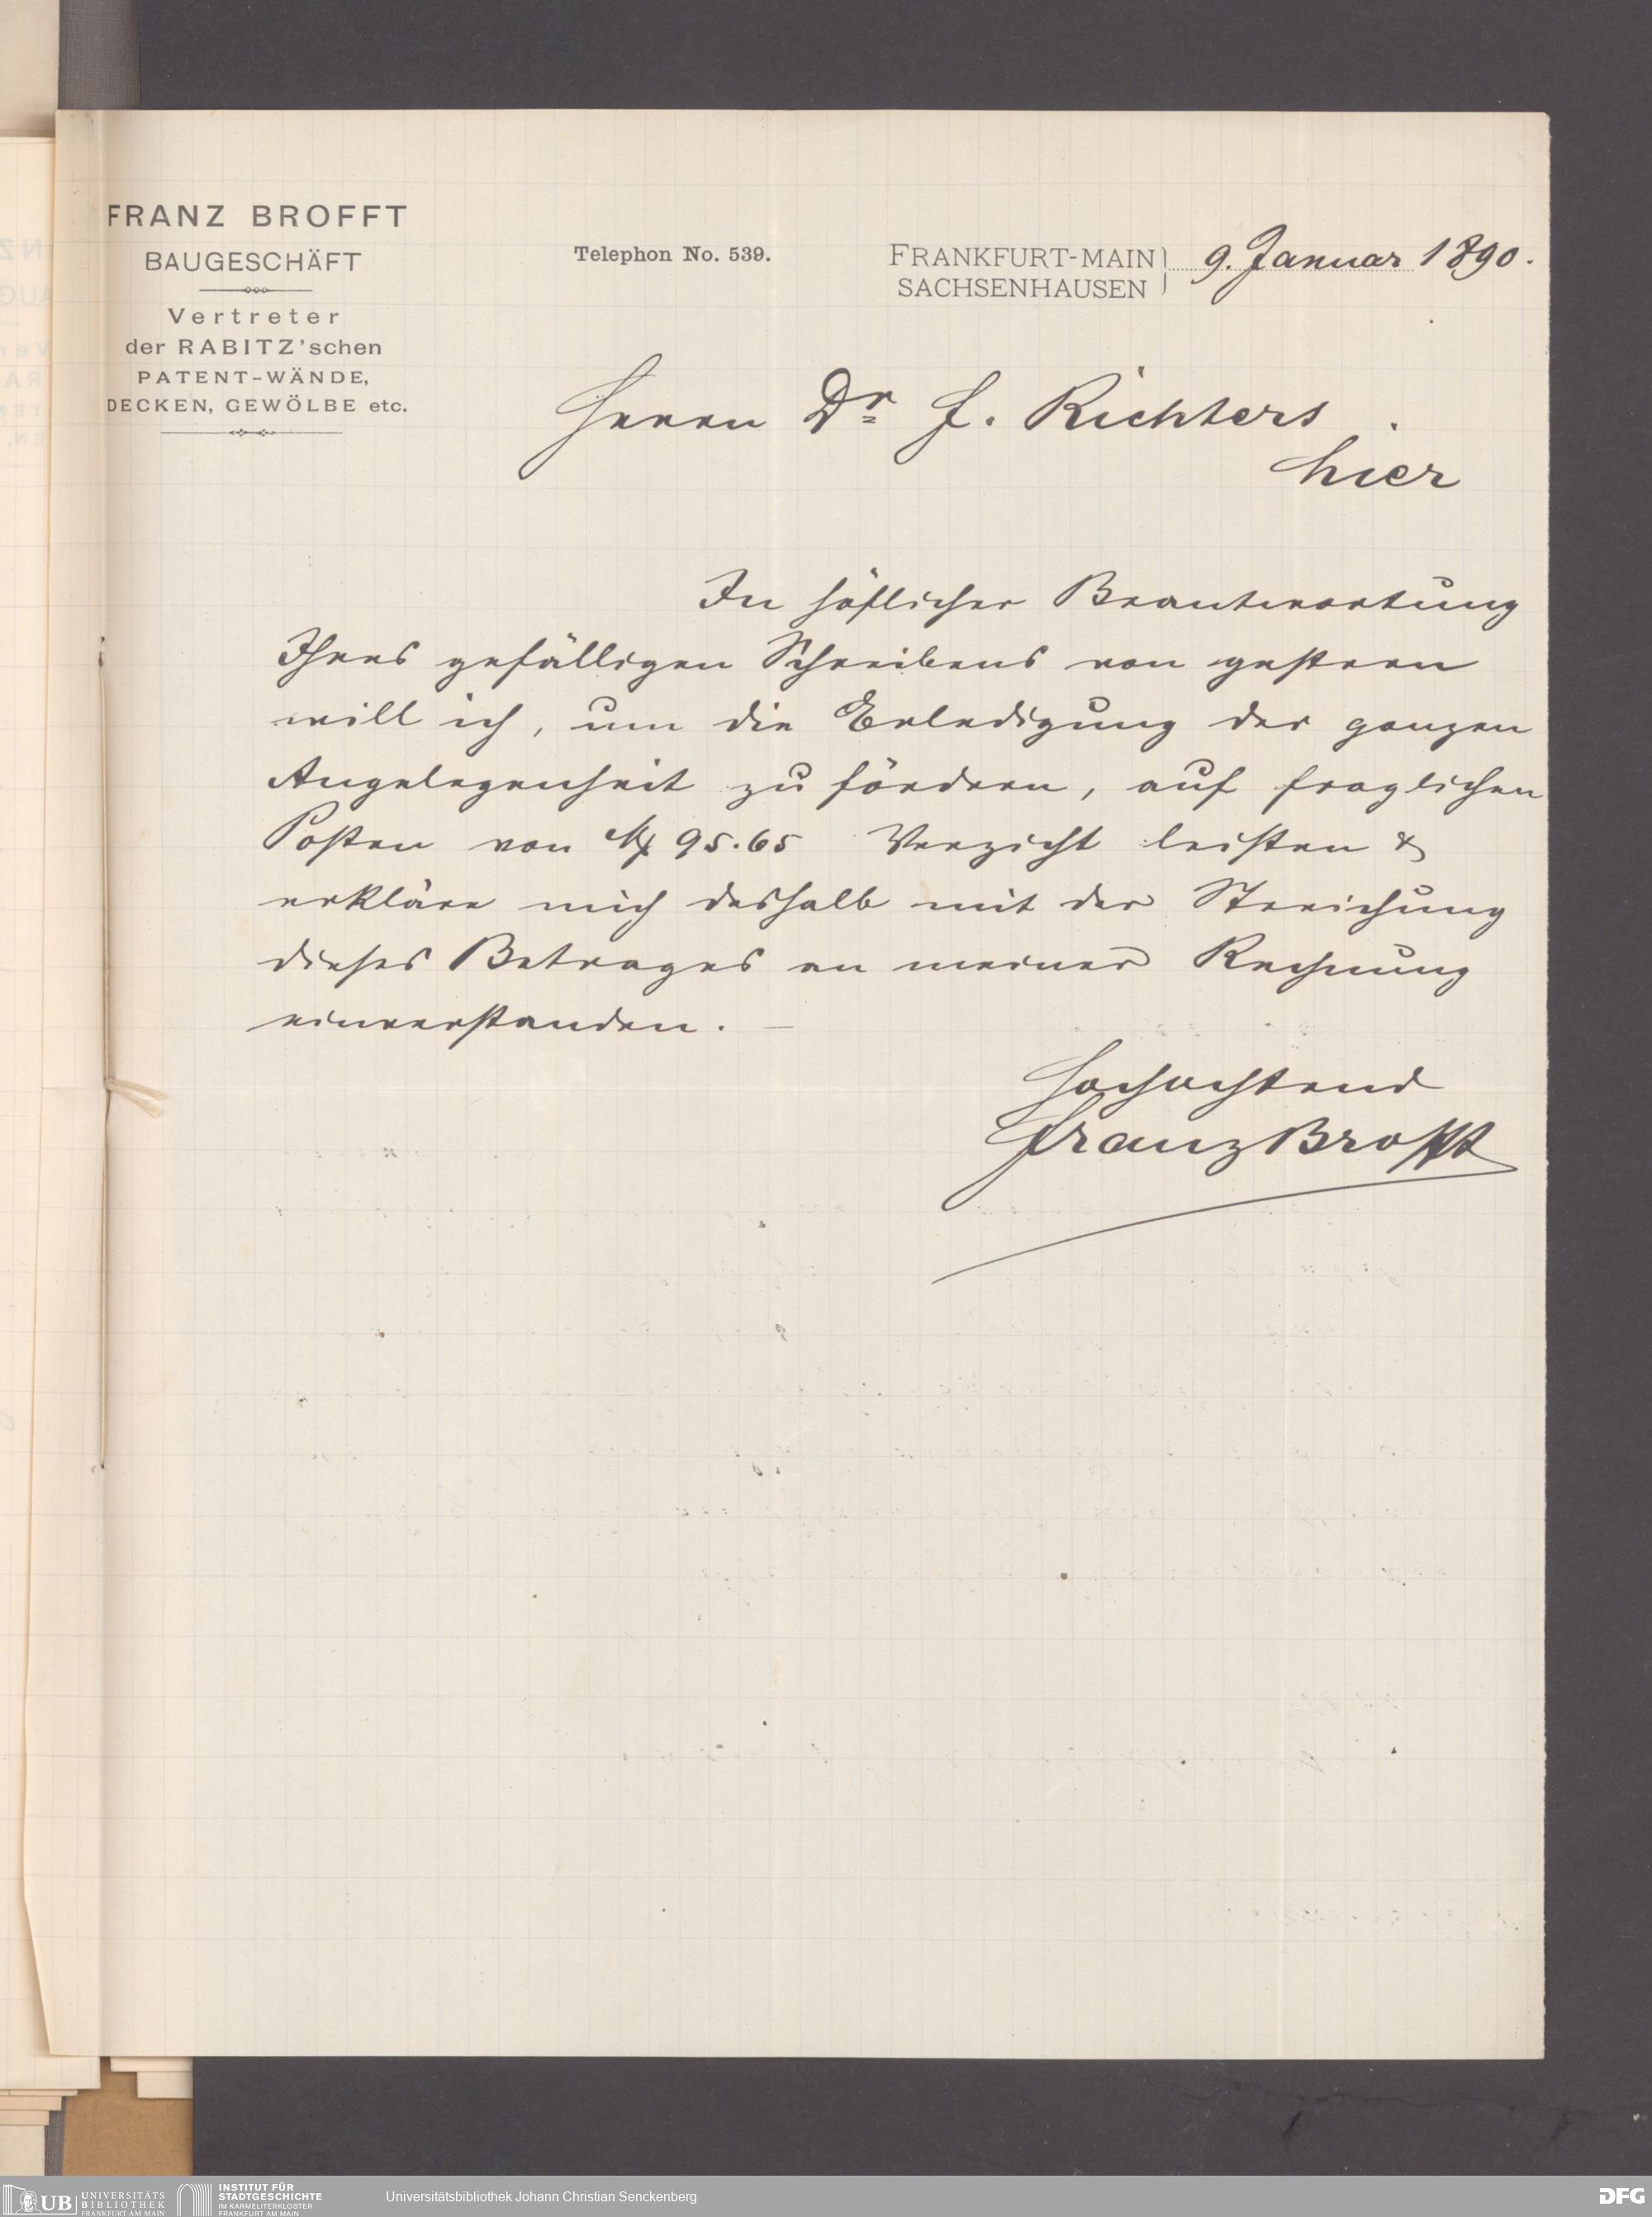 FRANZ BROFFT
BAUGESCHÄFT
Vertreter
der RABITZ'schen
PATENT-WÄNDE,
DECKEN, GEWÖLBE etc.
Telephon No. 539.
FRANKFURT-MAIN
SACHSENHAUSEN
9. Januar 1890.
Herrn Dr F. Richters.
hier
In höflicher Beantwortung
Ihres gefälligen Schreibens von gestern
will ich, um die Erledigung der ganzen
Angelegenheit zu fördern, auf fraglichen
Posten von M 95.65 Verzicht leisten &
erkläre mich deshalb mit der Streichung
dieses Betrages an meiner Rechnung
einverstanden. —
Hochachtend
Franz Brofft
UB
UNIVERSITÄTS
BIBLIOTHEK
FRANKFURT AM MAIN
INSTITUT FÜR
STADTGESCHICHTE
IM KARMELITERKLOSTER
FRANKFURT AM MAIN
Universitätsbibliothek Johann Christian Senckenberg
DFG